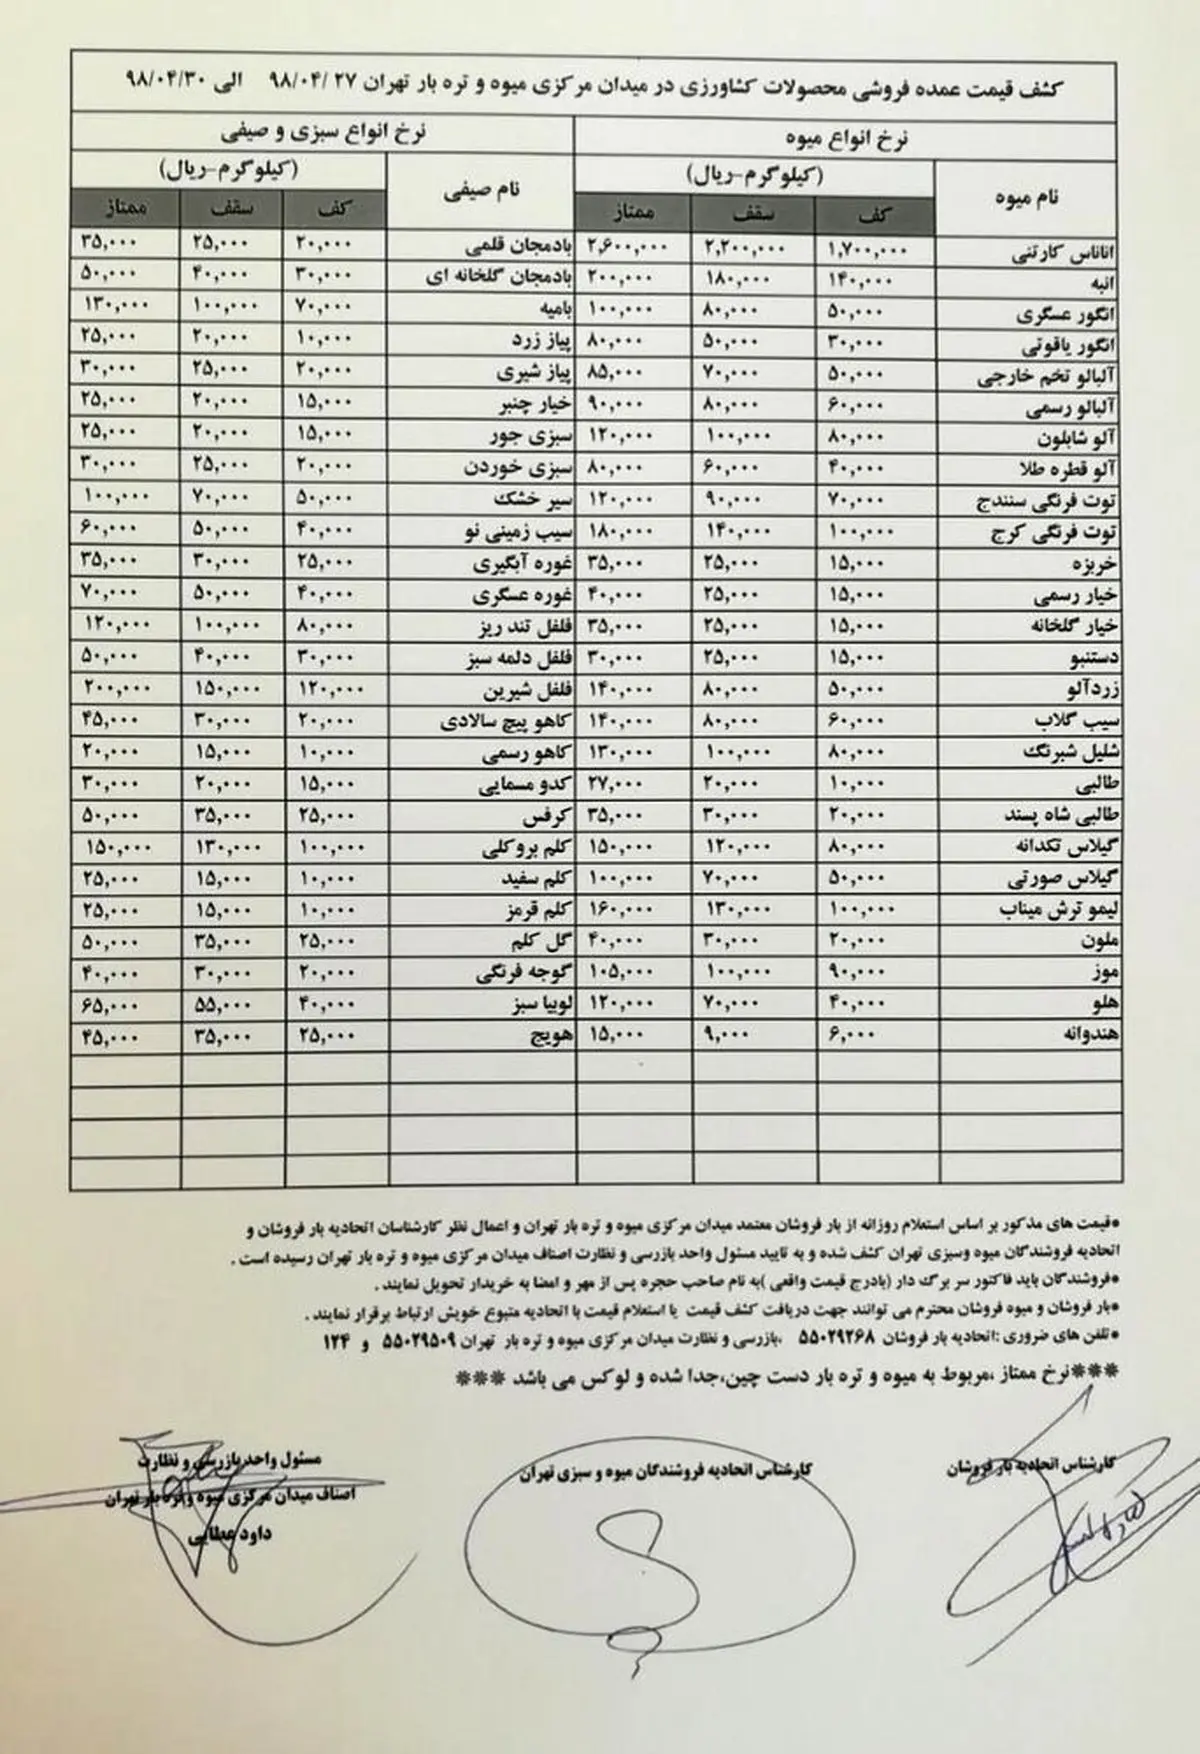 کشف قیمت عمده فروشی محصولات کشاورزی در میدان مرکزی میوه و تره بار تهران ۲۷ /۹۸/۰۴ الی ۹۸/۰۴/۳۰
نرخ انواع میوه نرخ انواع سبزی و صیفی
نام میوه (کیلوگرم-ریال) نام صیفی (کیلوگرم-ریال)
کف سقف ممتاز کف سقف ممتاز
اناناس کارتنی ۱,۷۰۰,۰۰۰ ۲,۲۰۰,۰۰۰ ۲,۶۰۰,۰۰۰ بادمجان قلمی ۲۰,۰۰۰ ۲۵,۰۰۰ ۳۵,۰۰۰
انبه ۱۴۰,۰۰۰ ۱۸۰,۰۰۰ ۲۰۰,۰۰۰ بادمجان گلخانه ای ۳۰,۰۰۰ ۴۰,۰۰۰ ۵۰,۰۰۰
انگور عسگری ۵۰,۰۰۰ ۸۰,۰۰۰ ۱۰۰,۰۰۰ بامیه ۷۰,۰۰۰ ۱۰۰,۰۰۰ ۱۳۰,۰۰۰
انگور یاقوتی ۳۰,۰۰۰ ۵۰,۰۰۰ ۸۰,۰۰۰ پیاز زرد ۱۰,۰۰۰ ۲۰,۰۰۰ ۲۵,۰۰۰
آلبالو تخم خارجی ۵۰,۰۰۰ ۷۰,۰۰۰ ۸۵,۰۰۰ پیاز شیری ۲۰,۰۰۰ ۲۵,۰۰۰ ۳۰,۰۰۰
آلبالو رسمی ۶۰,۰۰۰ ۸۰,۰۰۰ ۹۰,۰۰۰ خیار چنبر ۱۵,۰۰۰ ۲۰,۰۰۰ ۲۵,۰۰۰
آلو شابلون ۸۰,۰۰۰ ۱۰۰,۰۰۰ ۱۲۰,۰۰۰ سبزی جور ۱۵,۰۰۰ ۲۰,۰۰۰ ۲۵,۰۰۰
آلو قطره طلا ۴۰,۰۰۰ ۶۰,۰۰۰ ۸۰,۰۰۰ سبزی خوردن ۲۰,۰۰۰ ۲۵,۰۰۰ ۳۰,۰۰۰
توت فرنگی سنندج ۷۰,۰۰۰ ۹۰,۰۰۰ ۱۲۰,۰۰۰ سیر خشک ۵۰,۰۰۰ ۷۰,۰۰۰ ۱۰۰,۰۰۰
توت فرنگی کرج ۱۰۰,۰۰۰ ۱۴۰,۰۰۰ ۱۸۰,۰۰۰ سیب زمینی نو ۴۰,۰۰۰ ۵۰,۰۰۰ ۶۰,۰۰۰
خربزه ۱۵,۰۰۰ ۲۵,۰۰۰ ۳۵,۰۰۰ غوره آبگیری ۲۵,۰۰۰ ۳۰,۰۰۰ ۳۵,۰۰۰
خیار رسمی ۱۵,۰۰۰ ۲۵,۰۰۰ ۴۰,۰۰۰ غوره عسگری ۴۰,۰۰۰ ۵۰,۰۰۰ ۷۰,۰۰۰
خیار گلخانه ۱۵,۰۰۰ ۲۵,۰۰۰ ۳۵,۰۰۰ فلفل تند ریز ۸۰,۰۰۰ ۱۰۰,۰۰۰ ۱۲۰,۰۰۰
دستنبو ۱۵,۰۰۰ ۲۵,۰۰۰ ۳۰,۰۰۰ فلفل دلمه سبز ۳۰,۰۰۰ ۴۰,۰۰۰ ۵۰,۰۰۰
زردآلو ۵۰,۰۰۰ ۸۰,۰۰۰ ۱۴۰,۰۰۰ فلفل شیرین ۱۲۰,۰۰۰ ۱۵۰,۰۰۰ ۲۰۰,۰۰۰
سیب گلاب ۶۰,۰۰۰ ۸۰,۰۰۰ ۱۴۰,۰۰۰ کاهو پیچ سالادی ۲۰,۰۰۰ ۳۰,۰۰۰ ۴۵,۰۰۰
شلیل شبرنگ ۸۰,۰۰۰ ۱۰۰,۰۰۰ ۱۳۰,۰۰۰ کاهو رسمی ۱۰,۰۰۰ ۱۵,۰۰۰ ۲۰,۰۰۰
طالبی ۱۰,۰۰۰ ۲۰,۰۰۰ ۲۷,۰۰۰ کدو مسمایی ۱۵,۰۰۰ ۲۰,۰۰۰ ۳۰,۰۰۰
طالبی شاه پسند ۲۰,۰۰۰ ۳۰,۰۰۰ ۳۵,۰۰۰ کرفس ۲۵,۰۰۰ ۳۵,۰۰۰ ۵۰,۰۰۰
گیلاس تکدانه ۸۰,۰۰۰ ۱۲۰,۰۰۰ ۱۵۰,۰۰۰ کلم بروکلی ۱۰۰,۰۰۰ ۱۳۰,۰۰۰ ۱۵۰,۰۰۰
گیلاس صورتی ۵۰,۰۰۰ ۷۰,۰۰۰ ۱۰۰,۰۰۰ کلم سفید ۱۰,۰۰۰ ۱۵,۰۰۰ ۲۵,۰۰۰
لیمو ترش میناب ۱۰۰,۰۰۰ ۱۳۰,۰۰۰ ۱۶۰,۰۰۰ کلم قرمز ۱۰,۰۰۰ ۱۵,۰۰۰ ۲۵,۰۰۰
ملون ۲۰,۰۰۰ ۳۰,۰۰۰ ۴۰,۰۰۰ گل کلم ۲۵,۰۰۰ ۳۵,۰۰۰ ۵۰,۰۰۰
موز ۹۰,۰۰۰ ۱۰۰,۰۰۰ ۱۰۵,۰۰۰ گوجه فرنگی ۲۰,۰۰۰ ۳۰,۰۰۰ ۴۰,۰۰۰
هلو ۴۰,۰۰۰ ۷۰,۰۰۰ ۱۲۰,۰۰۰ لوبیا سبز ۴۰,۰۰۰ ۵۵,۰۰۰ ۶۵,۰۰۰
هندوانه ۶,۰۰۰ ۹,۰۰۰ ۱۵,۰۰۰ هویج ۲۵,۰۰۰ ۳۵,۰۰۰ ۴۵,۰۰۰
●قیمت های مذکور بر اساس استعلام روزانه از بار فروشان معتمد میدان مرکزی میوه و تره بار تهران و اعمال نظر کارشناسان اتحادیه بار فروشان و
اتحادیه فروشندگان میوه وسبزی تهران کشف شده و به تایید مسئول واحد بازرسی و نظارت اصناف میدان مرکزی میوه و تره بار تهران رسیده است .
●فروشندگان باید فاکتور سر برگ دار (بادرج قیمت واقعی )به نام صاحب حجره پس از مهر و امضا به خریدار تحویل نمایند .
●بار فروشان و میوه فروشان محترم می توانند جهت دریافت کشف قیمت یا استعلام قیمت با اتحادیه متبوع خویش ارتباط برقرار نمایند .
●تلفن های ضروری :اتحادیه بار فروشان ۵۵۰۲۹۲۶۸ ،بازرسی و نظارت میدان مرکزی میوه و تره بار تهران ۵۵۰۲۹۵۰۹ و ۱۲۴
***نرخ ممتاز ،مربوط به میوه و تره بار دست چین،جدا شده و لوکس می باشد ***
کارشناس اتحادیه بار فروشان
کارشناس اتحادیه فروشندگان میوه و سبزی تهران
مسئول واحد بازرسی و نظارت
اصناف میدان مرکزی میوه و تره بار تهران
داود عطایی